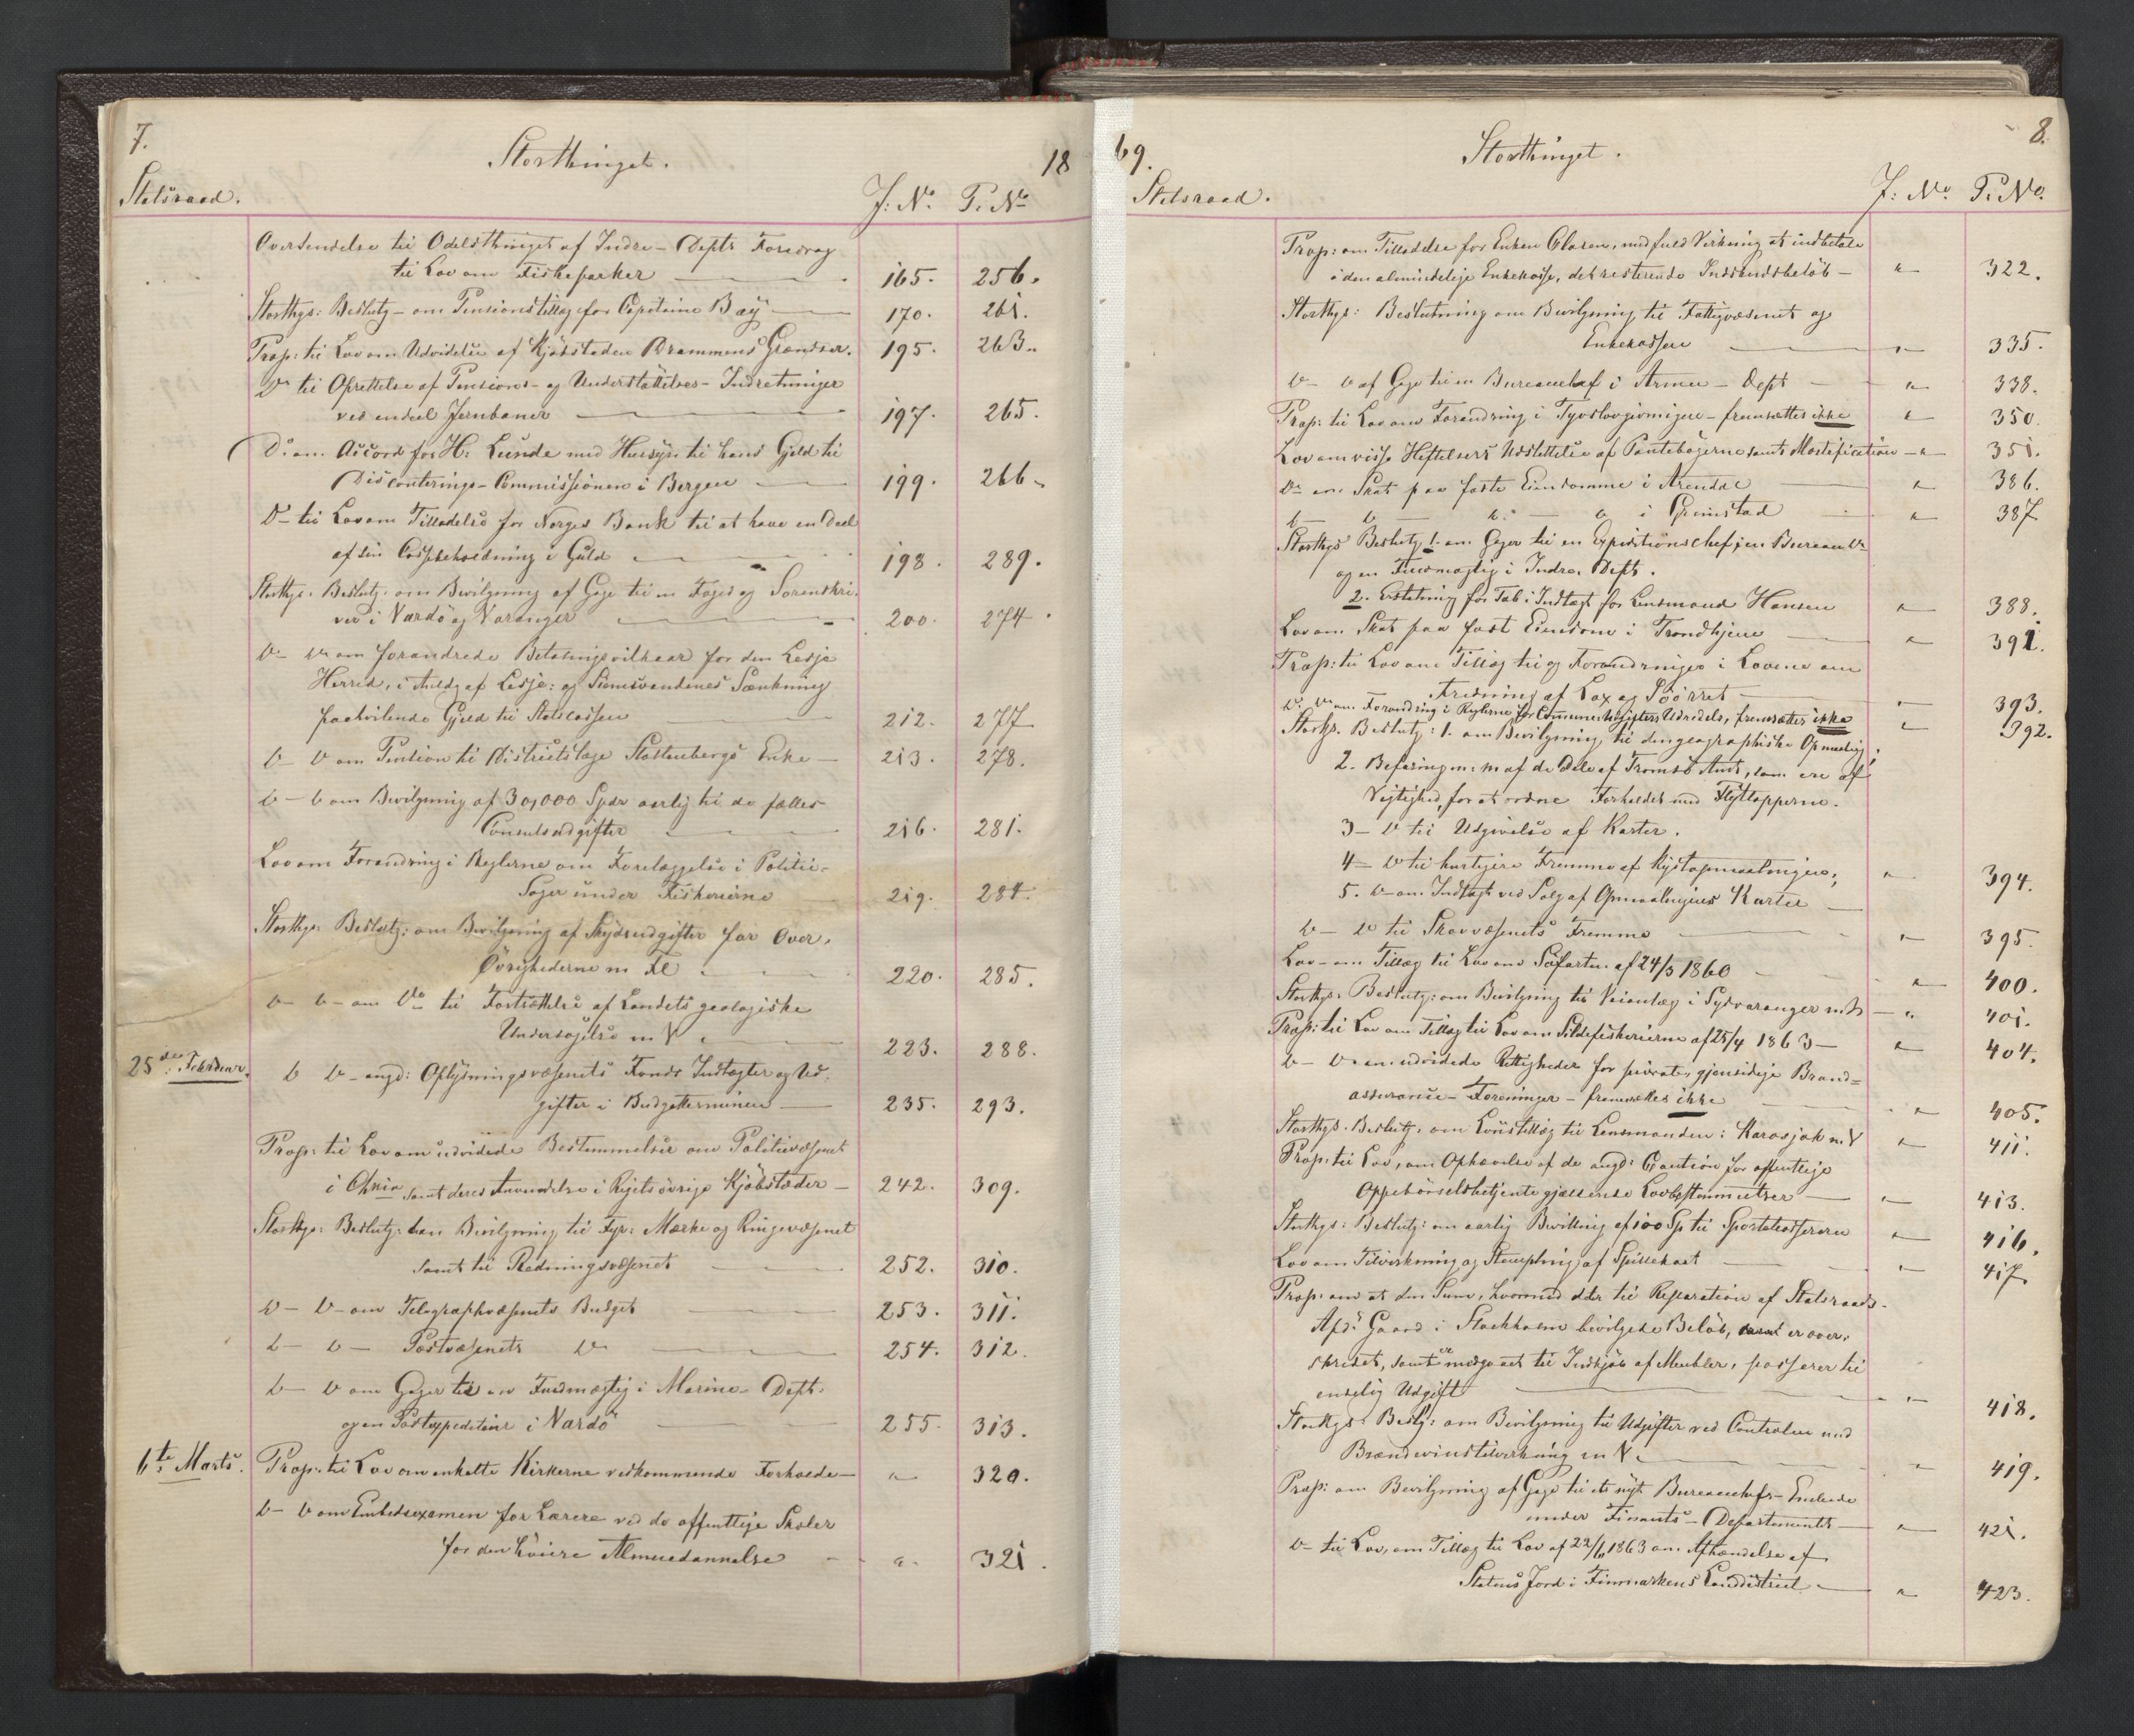 7.
Storthinget.
18
Statsraad.
J: No. P. No
Oversendelse til Odelsthinget af Indre-Depts Foredrag
til Lov om Fiskeparker 165. 256.
Storthgs: Beslutg - om Pensionstillæg for Capitaine Bay 170. 261.
Prop: til Lov om Udvidelse af Kjøbstaden Drammens Grændser. 195. 263.
Do til Oprettelse af Pensions- og Understøttelses-Indretninger
ved endeel Jernbaner 197. 265.
Do om Accord for H. Lunde med Hensyn til hans Gjeld til
Disconterings-Commissionen i Bergen 199. 266.
Do til Lov om Tilladelse for Norges Bank til at have en Deel
af sin Cassebeholdning i Guld 198. 289.
Storthgs: Beslutg: om Bevilgning af Gage til en Foged og Sorenskri-
ver i Vardö og Varanger 200. 274.
D- Do om forandrede Betalingsvilkaar for den Lesje
Herred, i Anledg af Lesje: og Sænkning
paahvilende Gjeld til Statscassen 212. 277
D- D om Pension til Districtslæge Stoltenbergs Enke 213. 278.
D- D om Bevilgning af 30,000 Spdr aarlig til de fælles
Consulsudgifter 216. 281.
Lov om Forandring i Reglerne om Forelæggelse i Politie-
Sager under Fiskerierne 219. 284.
Storthgs: Beslutg: om Bevilgning af Skydsudgifter for Over-
Øvrighederne m Fl 220. 285.
D- D- om Do til Fortsættelse af Landets geologiske
Undersøgelse m V 223. 288.
25de Februar. D D- angd: Oplysningsvæsenets Fonds Indtægter og Ud-
gifter i Budgetterminen 235. 293.
Prop: til Lov om udvidede Bestemmelser om Politievæsenet
i Chnia samt deres Anvendelse i Rigets øvrige Kjøbstæder 242. 309.
Storthgs: Beslutg: om Bevilgning til Fyr: Mærke og Ringevæsenet
samt til Redningsvæsenet 252. 310.
D- D- om Telegraphvæsenets Budget 253. 311.
D- D- Postvæsenets D 254. 312.
D- D om Gager til en Fuldmægtig i Marine-Dept:
og en Postexpediteur i Vardö 255. 313.
6te Marts. Prop: til Lov om enkelte Kirkerne vedkommende Forholde " 320.
D- D om Embedsexamen for Lærere ved de offentlige Skoler
for den høiere Almuedannelse " 321.
69.
Storthinget.
8.
Statsraad.
J: No. P. No.
Prop: om Tilladelse for Enken Olasen, med fuld Virkning at indbetale
i den almindelige Enkekasse, det resterende Indskudsbeløb " 322.
Storthgs: Beslutning om Bevilgning til Fattigvæsenet og
Enkekassen " 335.
D- D af Gage til en Bureauchef i Armee-Dept " 338.
Prop: til Lov om Forandring i Tyvslovgivningen - fremsættes ikke " 350.
Lov om visse Heftelsers Udslettelse af Pantebøgerne samt Mortification " 351.
Do om Skat paa faste Eiendomme i Arendal " 386.
D D D D i Grimstad " 387
Storthgs Beslutg 1. om Gager til en Expeditionschef, en Bureau Do
og en Fuldmægtig i Indre Dept.
2. Erstatning for Tab i Indtægt for Lensmand Hansen " 388.
Lov om Skat paa fast Eiendom i Trondhjem " 391.
Prop: til Lov om Tillæg til og Forandringer i Lovene om
Fredning af Lax og Søörret " 393.
D. Do om Forandring i Reglerne for Communeudgifters Udredels, fremsættes ikke " 392.
Storthgs. Beslutg: 1. om Bevilgning til den geographiske Opmaalig;
2. Befaring m: m af de Dele af Tromsö Amt, som ere af
Vigtighed, for at ordne Forholdet med Flytlapperne.
3- D til Udgivelse af Karter.
4- D til hurtigere Fremme af Kystopmaalingen;
5. D- om Indtægt ved Salg af Opmaalingens Karter " 394.
D- D til Skovvæsenets Fremme " 395.
Lov - om Tillæg til Lov om Søfarten af 24/3 1860 " 400.
Storthgs. Beslutg: om Bevilgning til Veianlæg i Sydvaranger m. V " 401.
Prop: til Lov om Tillæg til Lov om Sildefiskerierne af 25/4 1863 " 404.
D- D om udvidede Rettigheder for private, gjensidige Brand-
assurance-Foreninger - fremsættes ikke " 405.
Storthgs. Beslutg. om Lønstillæg til Lensmanden i Karasjok m. V " 411.
Prop: til Lov, om Ophævelse af de angd: Caution for offentlige
Oppebørselsbetjente gjældende Lovbestemmelser " 413.
Storthgs: Beslutg: om aarlig Bevillnig af 100 Sp til Sportelcassereren " 416.
Lov om Tilvirkning og Stempling af Spillekort " 417
Prop: om at den Sum, hvormed det til Reparation af Statsraads-
Afds: Gaard i Stockholm bevilgede Beløb, er over-
skredet, samt er medgaaet til Indkjøb af Meubler, passerer til
endelig Udgift " 418.
Storthgs: Beslg: om Bevilgning til Udgifter ved Controlen med
Brændeviinstilvirkning m V. " 419.
Prop: om Bevilgning af Gage til et nyt Bureauchefs-Embede
under Finants-Departementet " 421.
D- til Lov, om Tillæg til Lov af 22/6 1863 om Afhændelse af
Statens Jord i Finmarkens Landdistrict " 423.